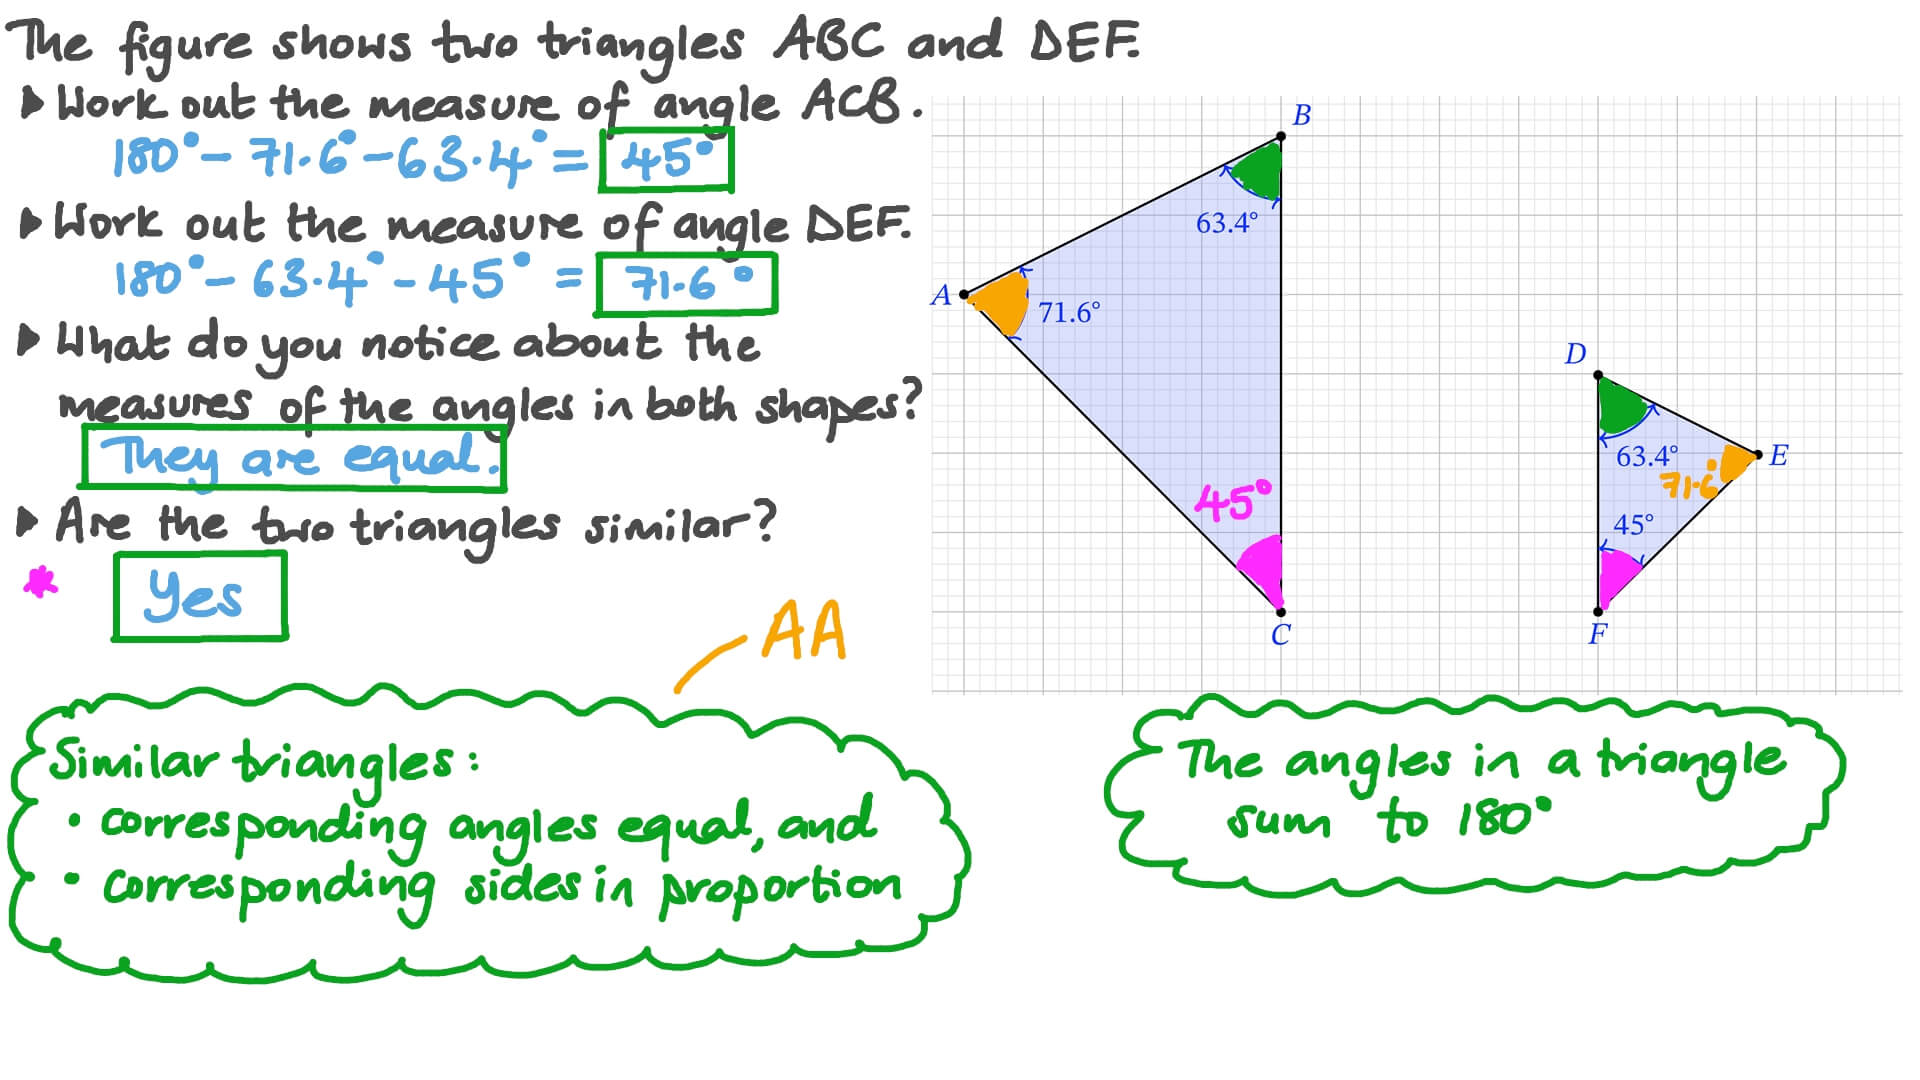 The figure shows two triangles ABC and DEF.
▸ Work out the measure of angle ACB.
180° - 71.6° - 63.4° = 45°
▸ Work out the measure of angle DEF.
180° - 63.4° - 45° = 71.6°
▸ What do you notice about the
measures of the angles in both shapes?
They are equal.
▸ Are the two triangles similar?
* Yes
AA
Similar triangles:
• corresponding angles equal, and
• corresponding sides in proportion
B
63.4°
A
71.6°
45°
C
D
63.4°
E
71.6°
45°
F
The angles in a triangle
sum to 180°